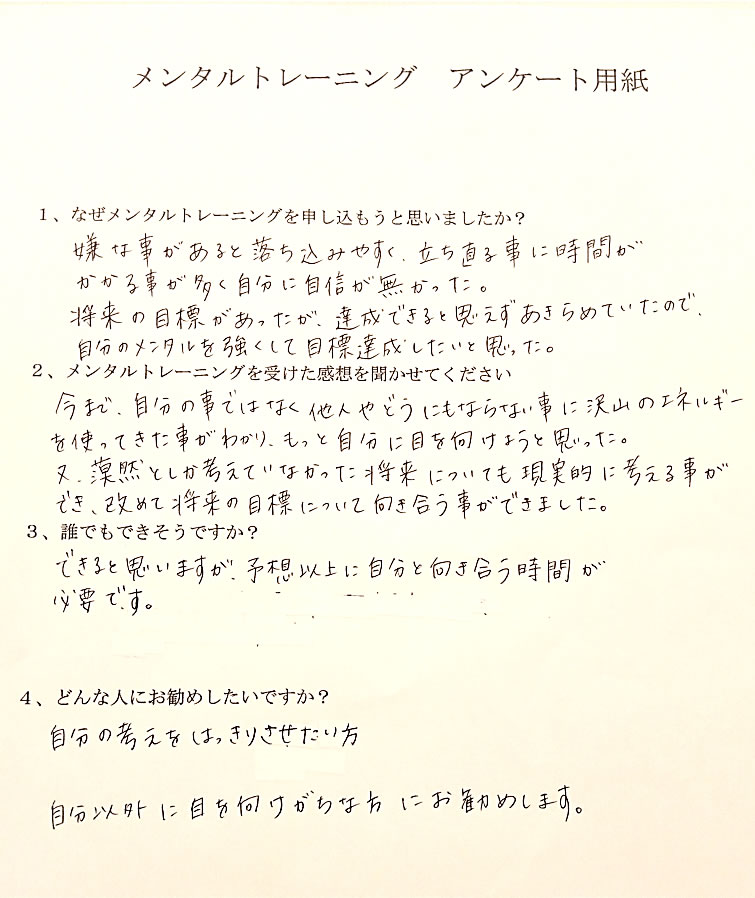 メンタルトレーニング　アンケート用紙
１、なぜメンタルトレーニングを申し込もうと思いましたか？
嫌な事があると落ち込みやすく、立ち直る事に時間が
かかる事が多く自分に自信が無かった。
将来の目標があったが、達成できると思えずあきらめていたので、
自分のメンタルを強くして目標達成したいと思った。
２、メンタルトレーニングを受けた感想を聞かせてください
今まで、自分の事ではなく他人やどうにもならない事に沢山のエネルギー
を使ってきた事がわかり、もっと自分に目を向けようと思った。
又、漠然としか考えていなかった将来についても現実的に考える事が
でき、改めて将来の目標について向き合う事ができました。
３、誰でもできそうですか？
できると思いますが、予想以上に自分と向き合う時間が
必要です。
４、どんな人にお勧めしたいですか？
自分の考えをはっきりさせたい方
自分以外に目を向けがちな方にお勧めします。